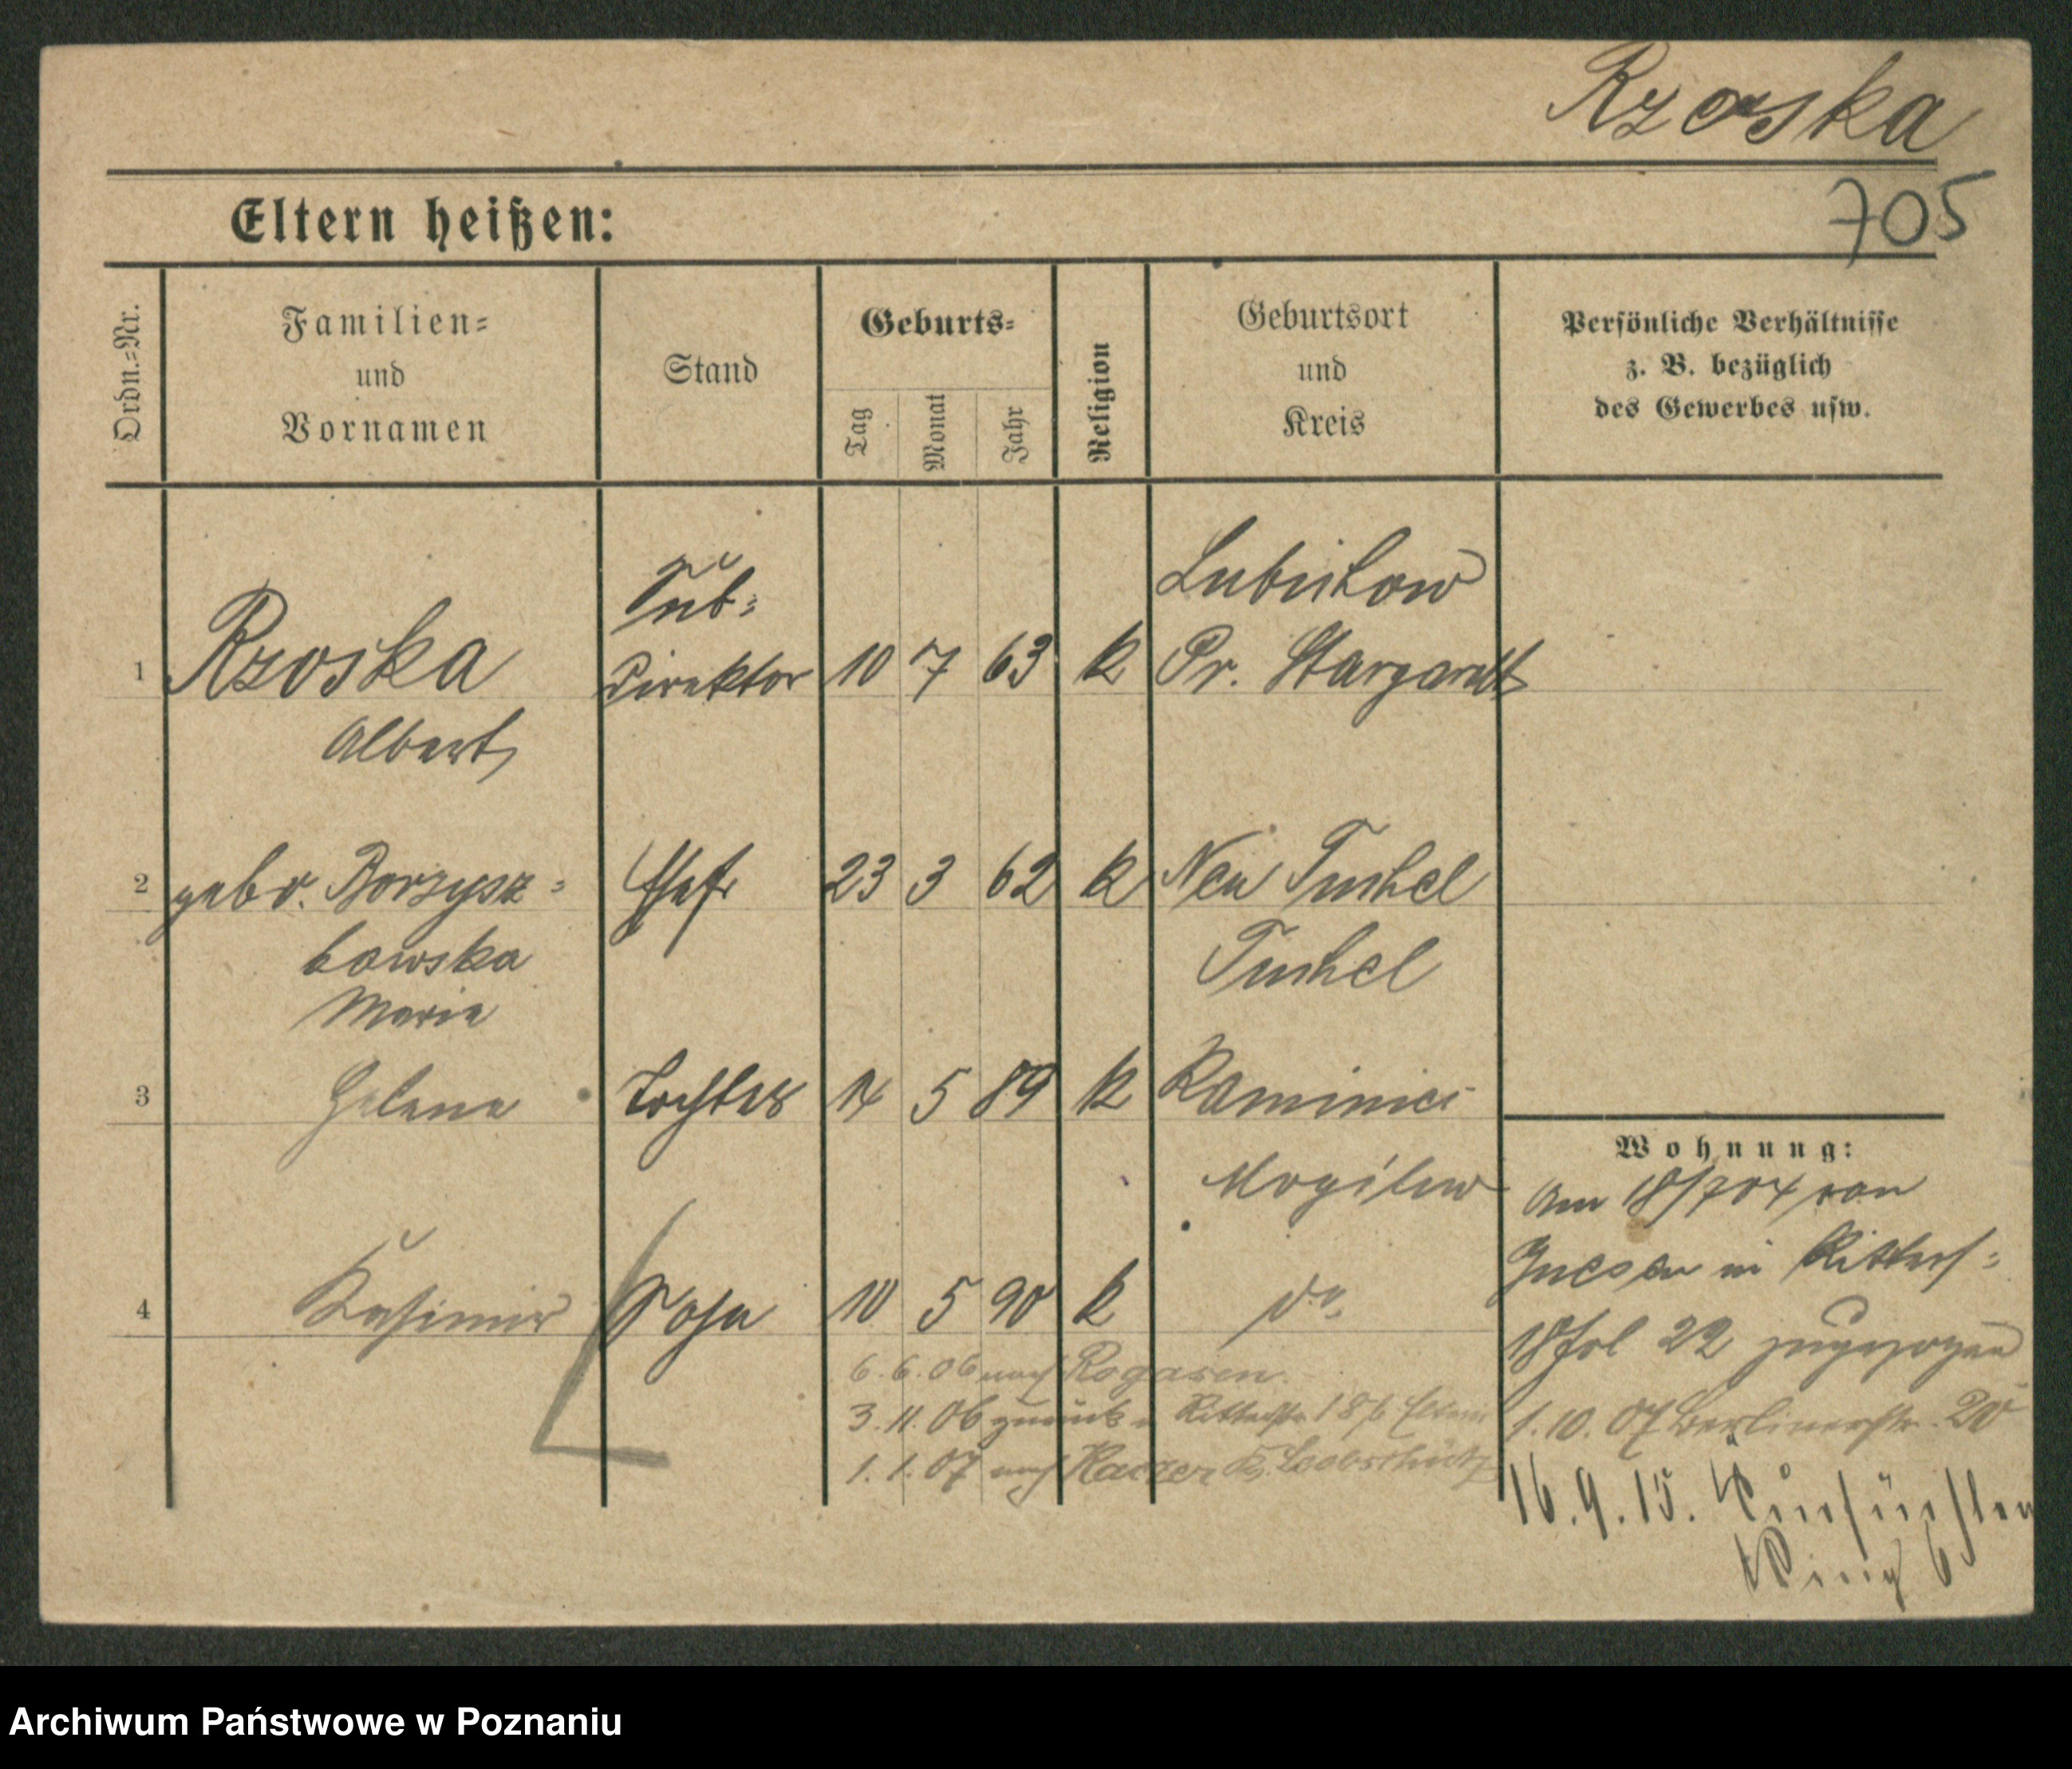 Rzoska
705
Eltern heißen:
Ordn.=Nr.
Familien=
und
Vornamen
Stand
Geburts=
Tag
Monat
Jahr
Religion
Geburtsort
und
Kreis
Persönliche Verhältnisse
z. B. bezüglich
des Gewerbes usw.
1 Rzoska
Albert
Sub=
Direktor
10 7 63 k
Lubichow
Pr. Stargardt
2 gebor. Borzysz=
kowska
Marie
Ehefr
23 3 62 k
Neu Tuchel
Tuchel
3 Helene
Tochter
14 5 89 k
Kaminiec
Mogilew
4 Kasimir
Sohn
10 5 90 k
do.
6.6.06 nach Rogasen.
3.11.06 zurück Ritterstr 18 b Eltern
1.1.07 nach Katscher Kr. Leobschütz
Wohnung:
Am 18/7 04 von
Gnesen in Ritterf=
18 fol 22 zugezogen
1.10.07 Berlinerstr. 20
16.9.15. Kurfürsten
Ring 6
Archiwum Państwowe w Poznaniu